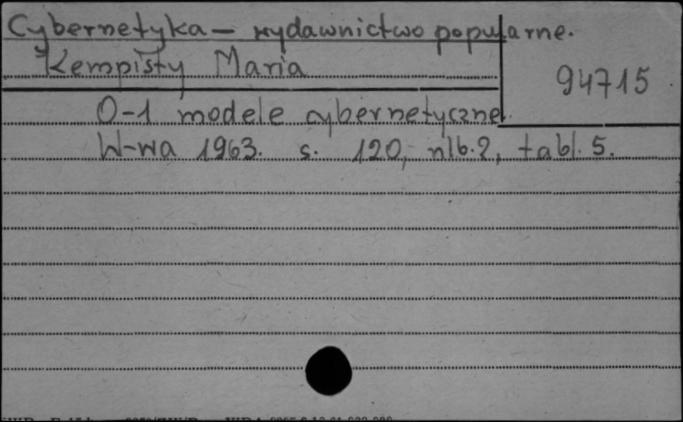 Cybernetyka – wydawnictwo popularne.
Kempisty Maria
94715
0-1 modele cybernetyczne.
W-wa 1963. s. 120, nlb. 2, tabl. 5.